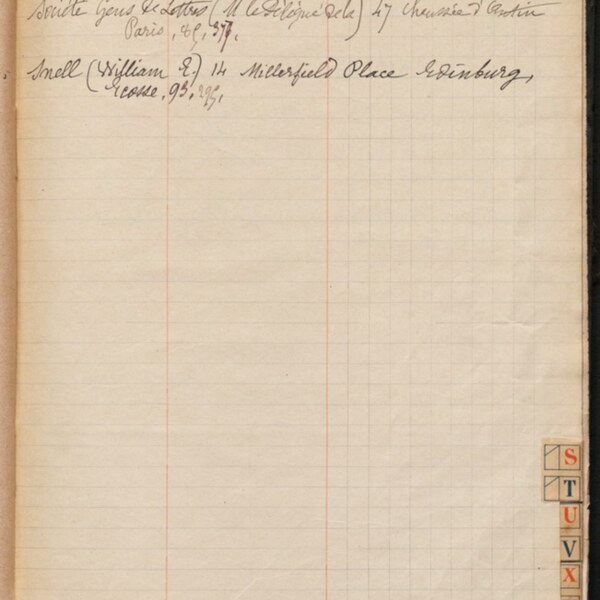 Société Gens de Lettres (M le Délégué de la) 47 Chaussée d'Antin
Paris, 85, 377,
Snell (William E.) 14 Millerfield Place Edinburg,
Ecosse, 93, 295,
S
T
U
V
X